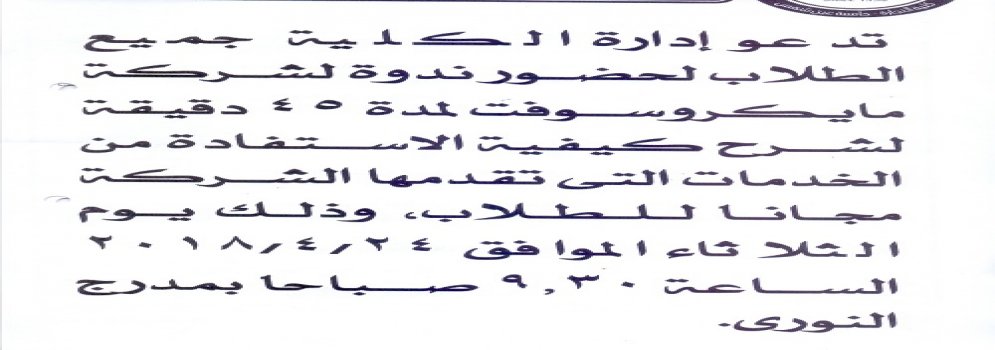 تدعو إدارة الكلية جميع
الطلاب لحضور ندوة لشركة
مايكروسوفت لمدة ٤٥ دقيقة
لشرح كيفية الاستفادة من
الخدمات التى تقدمها الشركة
مجانا للطلاب، وذلك يوم
الثلاثاء الموافق ٢٠١٨/٤/٢٤
الساعة ٩,٣٠ صباحا بمدرج
النورى.